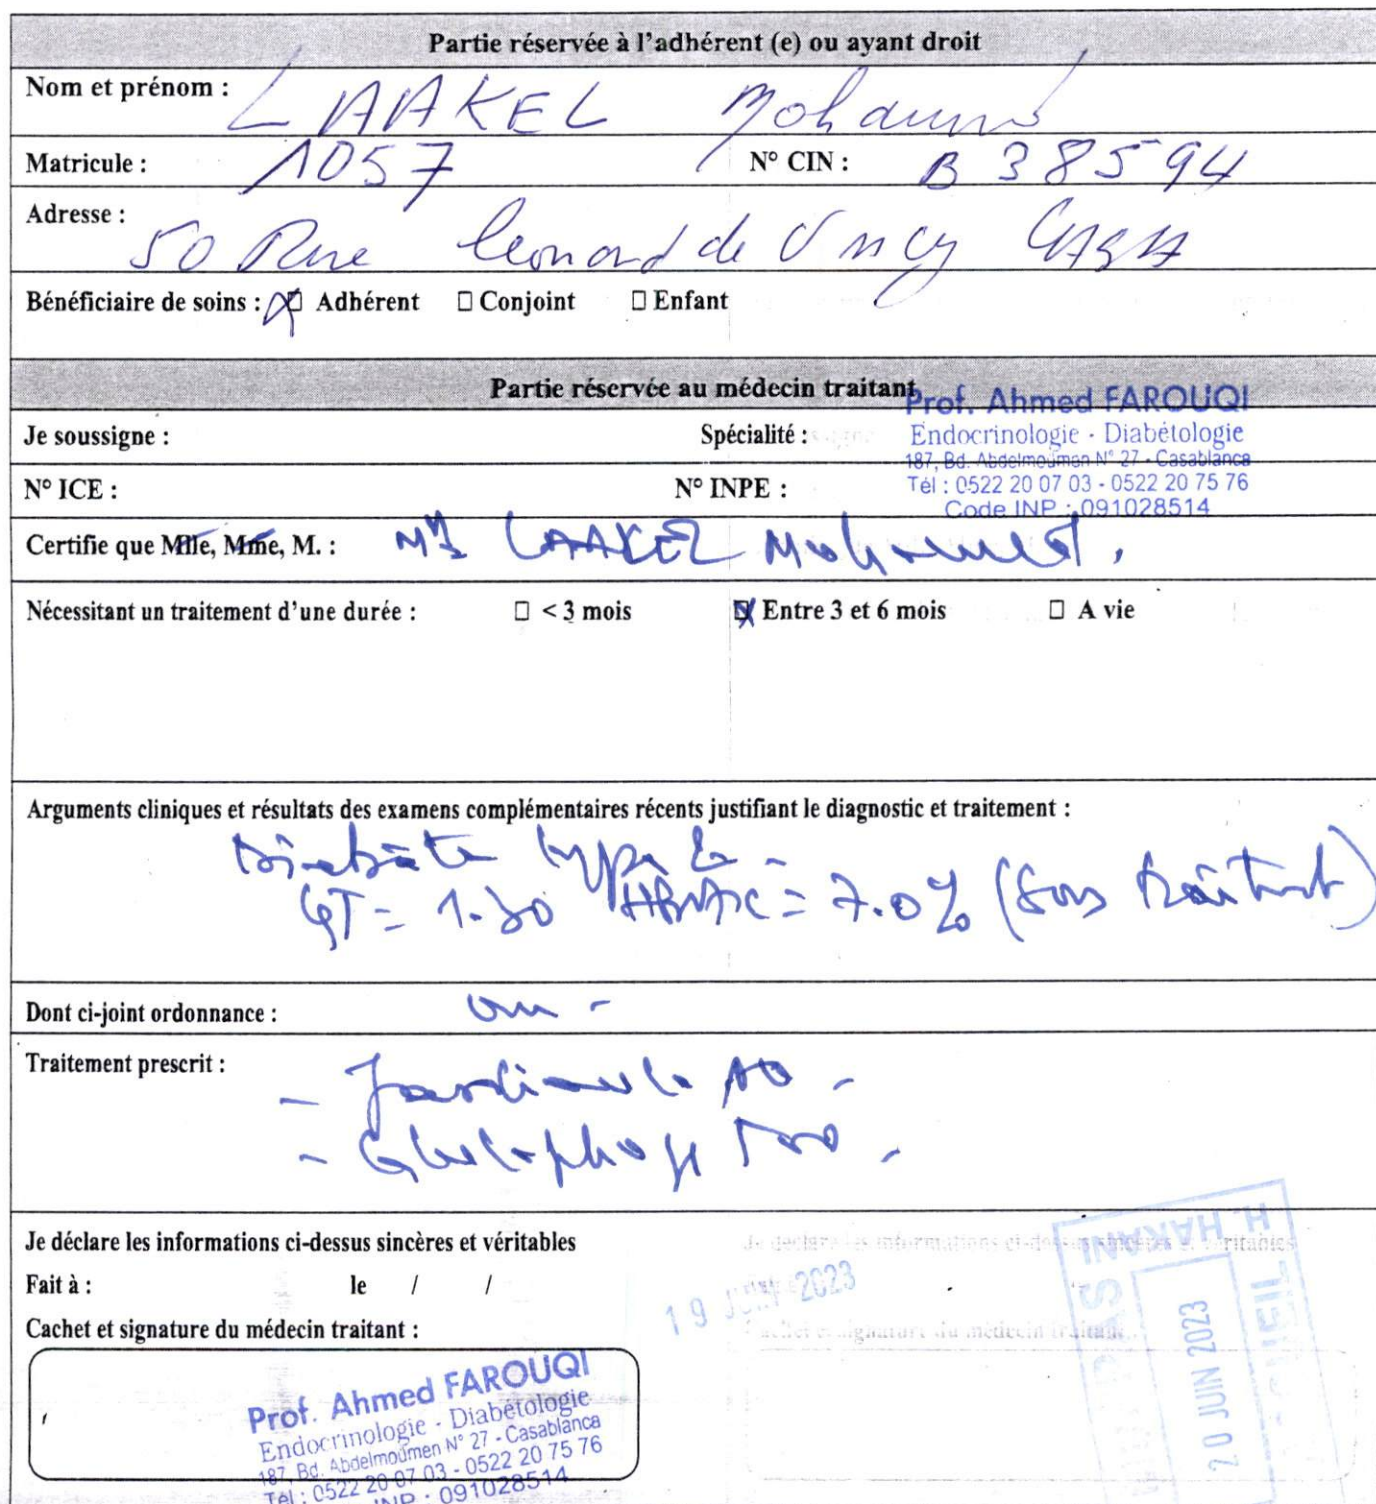 Partie réservée à l'adhérent (e) ou ayant droit
Nom et prénom : LAAKEL Mohammed
Matricule : 1057 N° CIN : B 38594
Adresse : 50 Rue leonard de Vincy CASA
Bénéficiaire de soins : X Adhérent □ Conjoint □ Enfant
Partie réservée au médecin traitant
Prof. Ahmed FAROUQI
Je soussigne : Spécialité : Endocrinologie - Diabétologie
187, Bd. Abdelmoumen N° 27 - Casablanca
N° ICE : N° INPE : Tél : 0522 20 07 03 - 0522 20 75 76
Code INP : 091028514
Certifie que Mlle, Mme, M. : Mr LAAKEL Mohammed.
Nécessitant un traitement d'une durée : □ < 3 mois X Entre 3 et 6 mois □ A vie
Arguments cliniques et résultats des examens complémentaires récents justifiant le diagnostic et traitement :
Diabète type 2 -
HbA1c = 7.0% (Sous traitmt)
Dont ci-joint ordonnance : oui -
Traitement prescrit : - Jardiance 10 -
- Glucophage 500 -
Je déclare les informations ci-dessus sincères et véritables
Fait à : le / /
19 JUIN 2023
Cachet et signature du médecin traitant :
Prof. Ahmed FAROUQI
Endocrinologie - Diabétologie
187, Bd. Abdelmoumen N° 27 - Casablanca
Tél : 0522 20 07 03 - 0522 20 75 76
INP : 091028514
H. HARANI
20 JUIN 2023